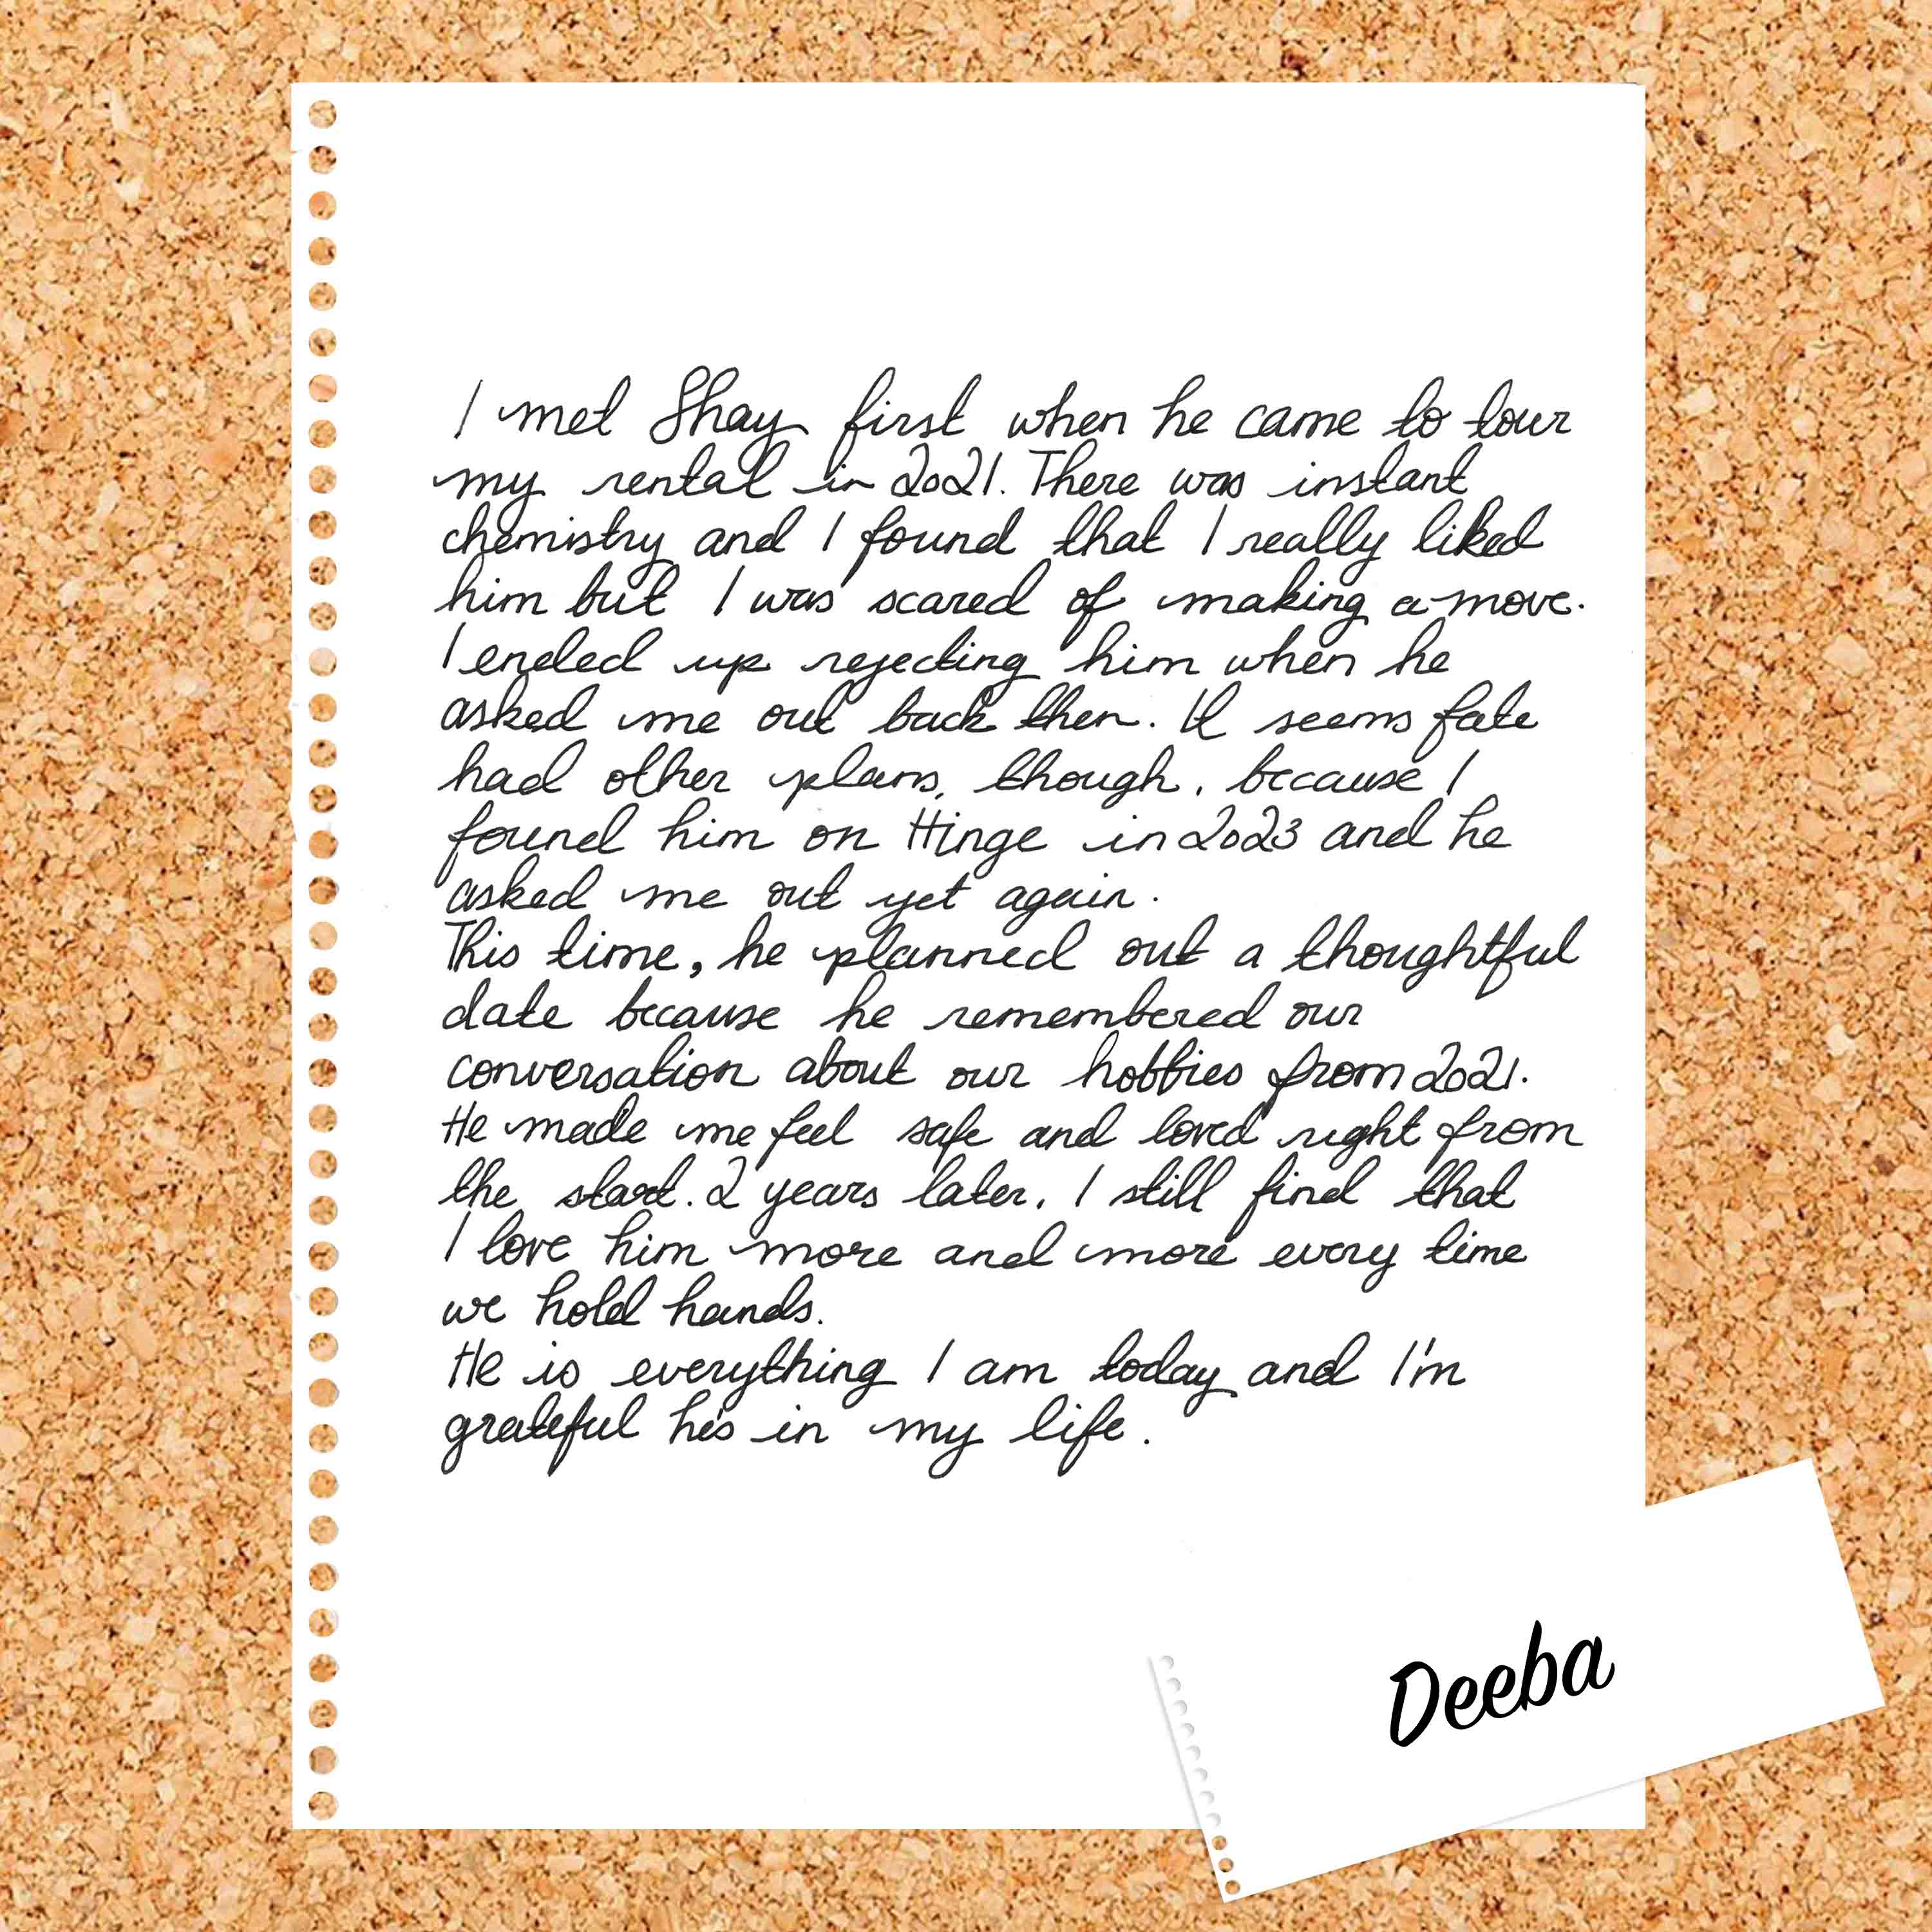 I met Shay first when he came to tour
my rental in 2021. There was instant
chemistry and I found that I really liked
him but I was scared of making a move.
I ended up rejecting him when he
asked me out back then. It seems fate
had other plans, though, because I
found him on Hinge in 2023 and he
asked me out yet again.
This time, he planned out a thoughtful
date because he remembered our
conversation about our hobbies from 2021.
He made me feel safe and loved right from
the start. 2 years later, I still find that
I love him more and more every time
we hold hands.
He is everything I am today and I'm
grateful he's in my life.
Deeba